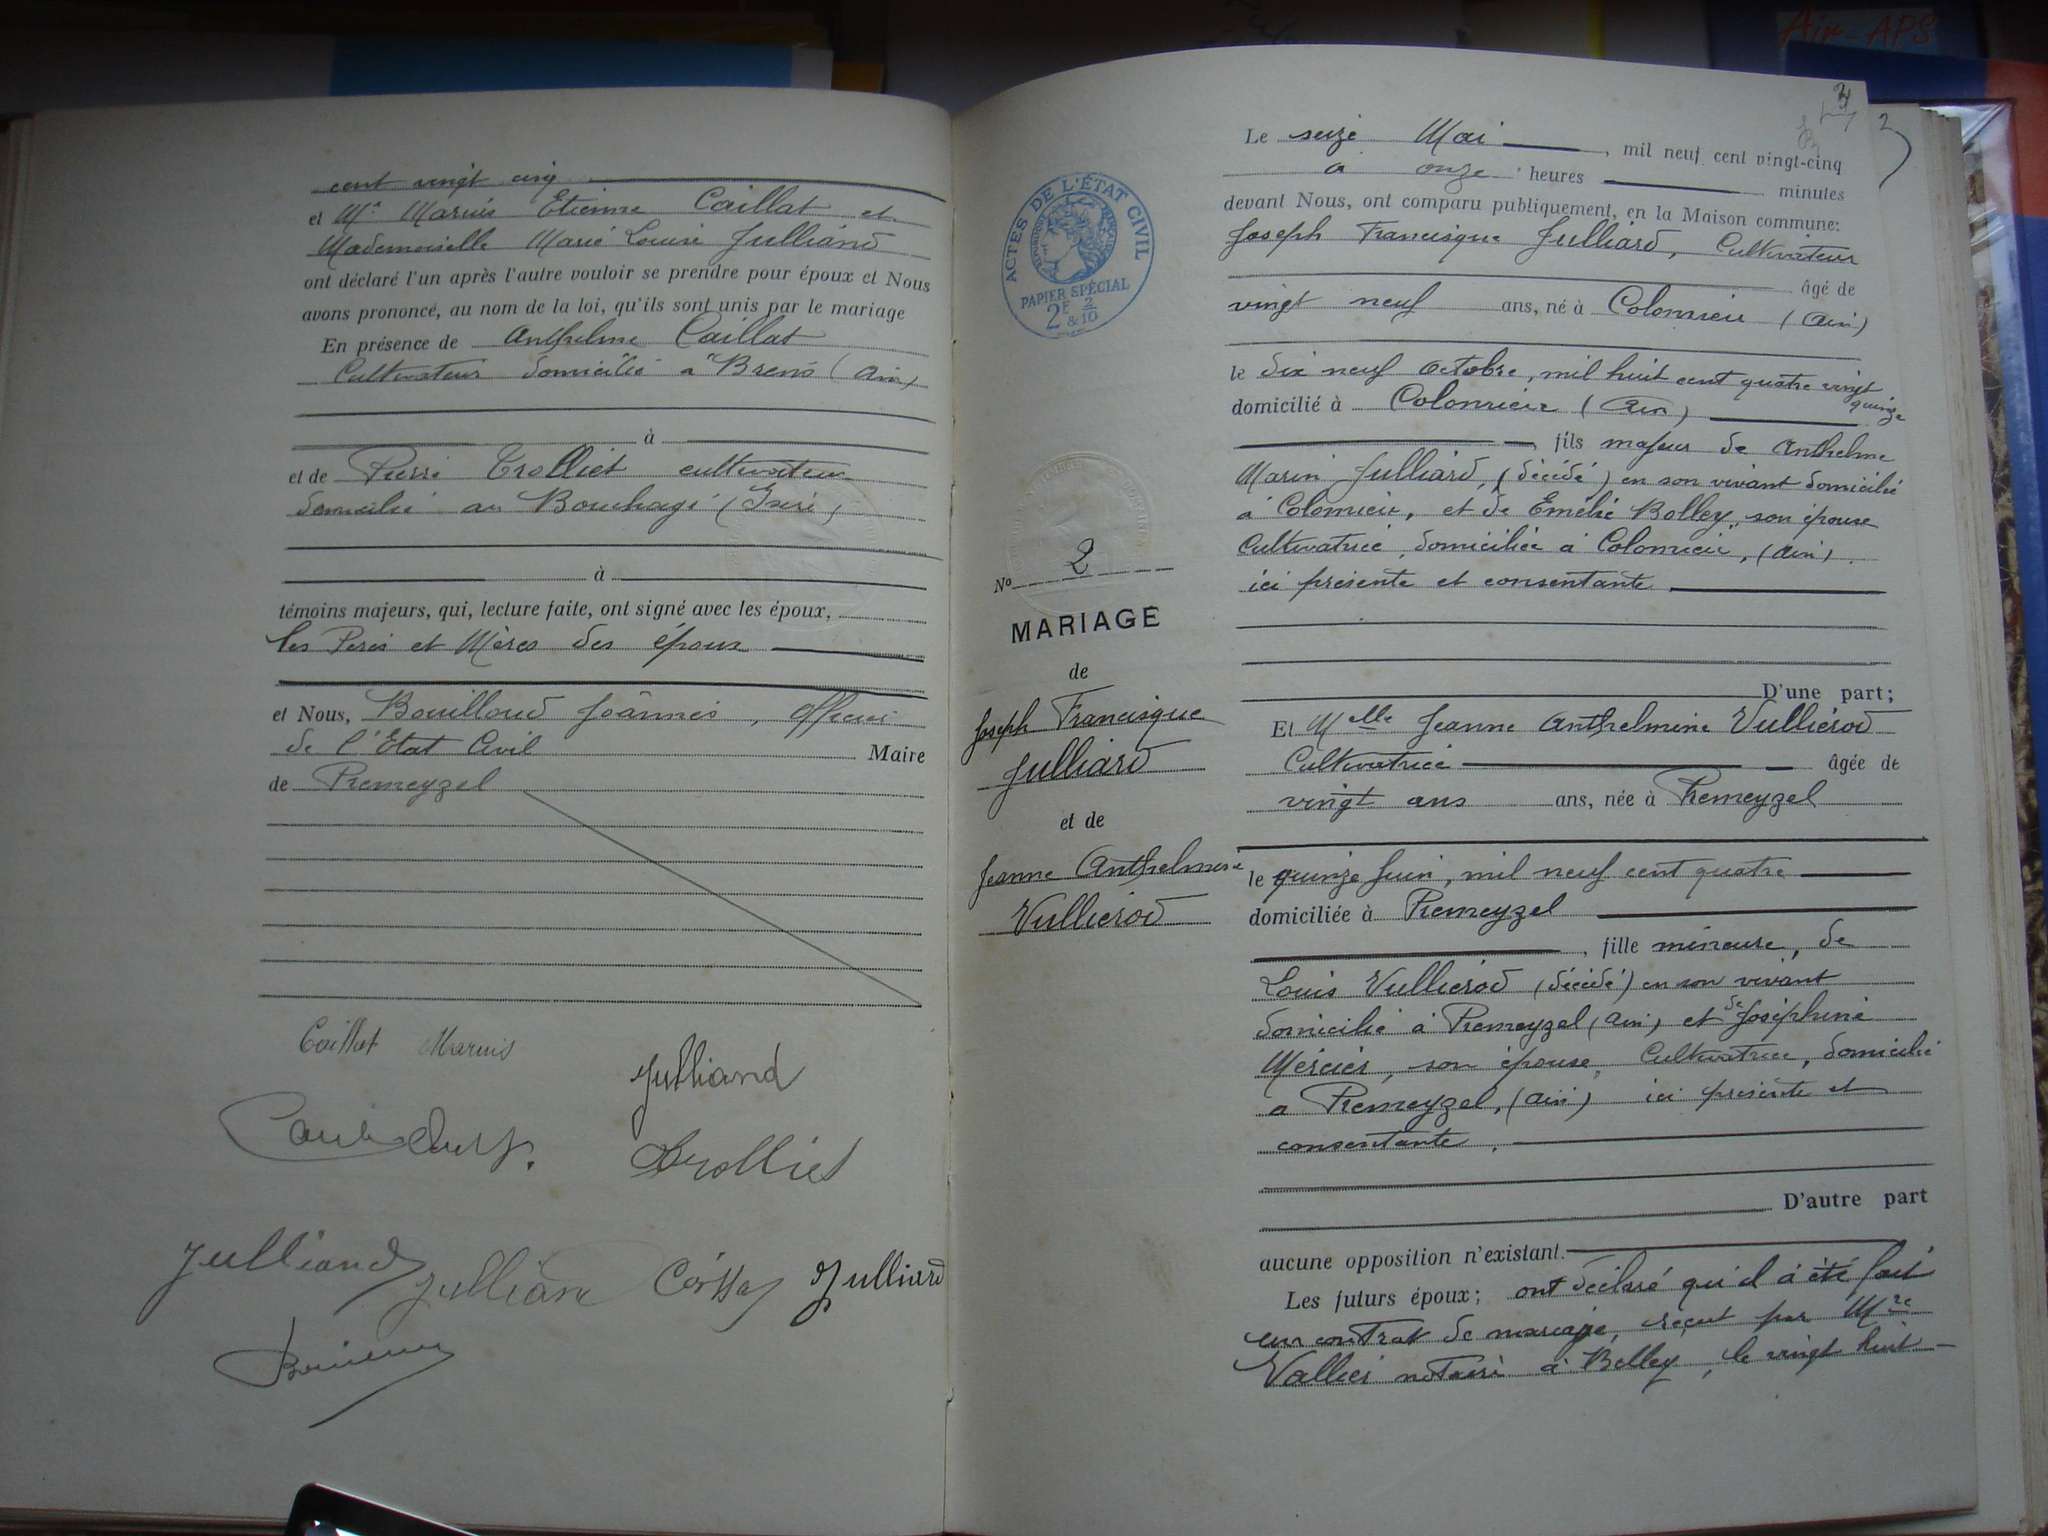 cent vingt cinq
et Mr Marius Etienne Caillat et
Mademoiselle Marie Louise Julliand
ont déclaré l'un après l'autre vouloir se prendre pour époux et Nous
avons prononcé, au nom de la loi, qu'ils sont unis par le mariage
En présence de Anthelme Caillat
Cultivateur domicilié à Brens (Ain)
à
et de Pierre Trolliet cultivateur
domicilié au Bouchage (Isère)
à
témoins majeurs, qui, lecture faite, ont signé avec les époux,
les Pères et Mères des époux
et Nous, Bouilloud Joannès, officier
de l'Etat Civil Maire
de Premeyzel
Caillat Marius
Julliand
Trolliet
Julliand Julliand Julliard
Air-APS
2
ACTES DE L'ÉTAT CIVIL
PAPIER SPÉCIAL
2F 2/10
&
No 2
MARIAGE
de
Joseph Francisque
Julliard
et de
Jeanne Anthelmine
Vulliérod
Le seize Mai, mil neuf cent vingt-cinq
à onze heures minutes
devant Nous, ont comparu publiquement, en la Maison commune:
Joseph Francisque Julliard, Cultivateur
âgé de
vingt neuf ans, né à Colomieu (Ain)
le dix neuf octobre, mil huit cent quatre vingt
quinze
domicilié à Colomieu (Ain)
, fils majeur de Anthelme
Marin Julliard, (décédé) en son vivant domicilié
à Colomieu, et de Emélie Bolley, son épouse
Cultivatrice, domiciliée à Colomieu, (Ain).
ici présente et consentante
D'une part;
Et Melle Jeanne Anthelmine Vulliérod
Cultivatrice âgée de
vingt ans ans, née à Premeyzel
le quinze Juin, mil neuf cent quatre
domiciliée à Premeyzel
, fille mineure, de
Louis Vulliérod (décédé) en son vivant
domicilié à Premeyzel (Ain) et de Joséphine
Mercier, son épouse, Cultivatrice, domicilié
à Premeyzel, (Ain) ici présente et
consentante.
D'autre part
aucune opposition n'existant.
Les futurs époux; ont déclaré qu'il a été fait
un contrat de mariage, reçut par Mre
Vallier notaire à Belley, le vingt huit